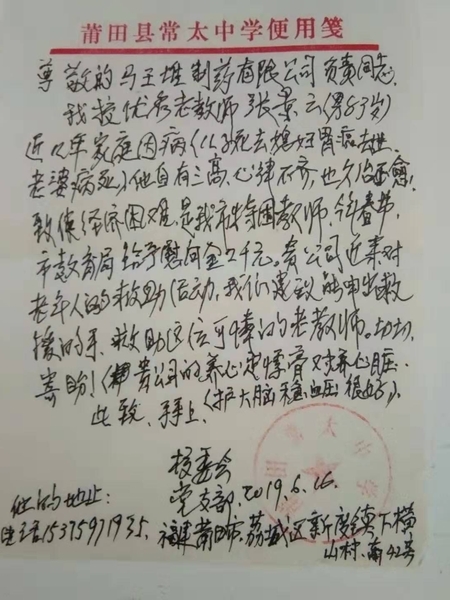 莆田县常太中学便用笺
尊敬的马王堆制药有限公司负责同志:
我校优秀老教师张景云(男83岁)
近几年家庭因病(儿子死去媳妇肾病去世
老婆病死)他自有三高、心律不齐,也久治不愈,
致使经济困难,是我市特困教师,今年春节,
市教育局给予慰问金2千元。贵公司近来对
老年人的救助活动,我们建议能伸出救
援的手,救助这位可怜的老教师。切切
寄盼!(贵公司的养心定悸膏又养心脏
护大脑稳血压很好)。
此致、拜上
校委会
党支部.2019.6.26.
他的地址:
福建莆田市.荔城区新度镇下横
山村.南42号